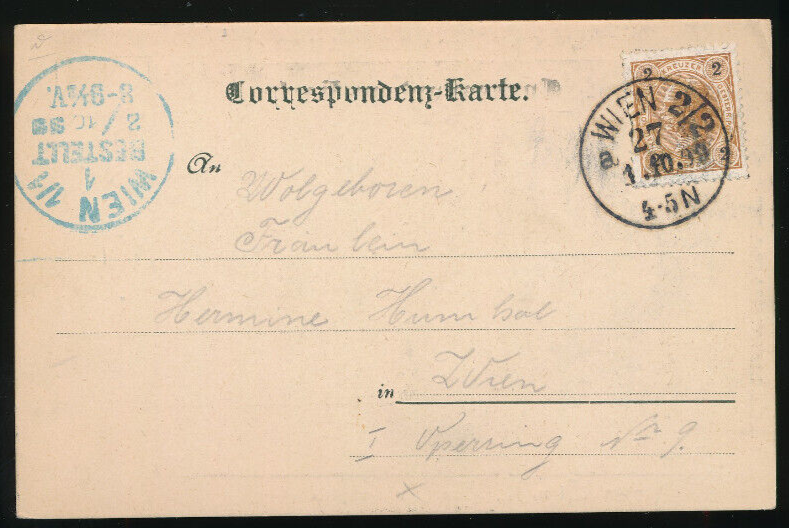 Correspondenz-Karte.
2 KREUZER 2
2
WIEN 2/2
a 27
1.10.98
4-5N
WIEN 1/1
1
BESTELLT
2/10 98
8-9½V.
An
Wolgeboren
Fräulein
Hermine
in Wien
I Operring No 9.